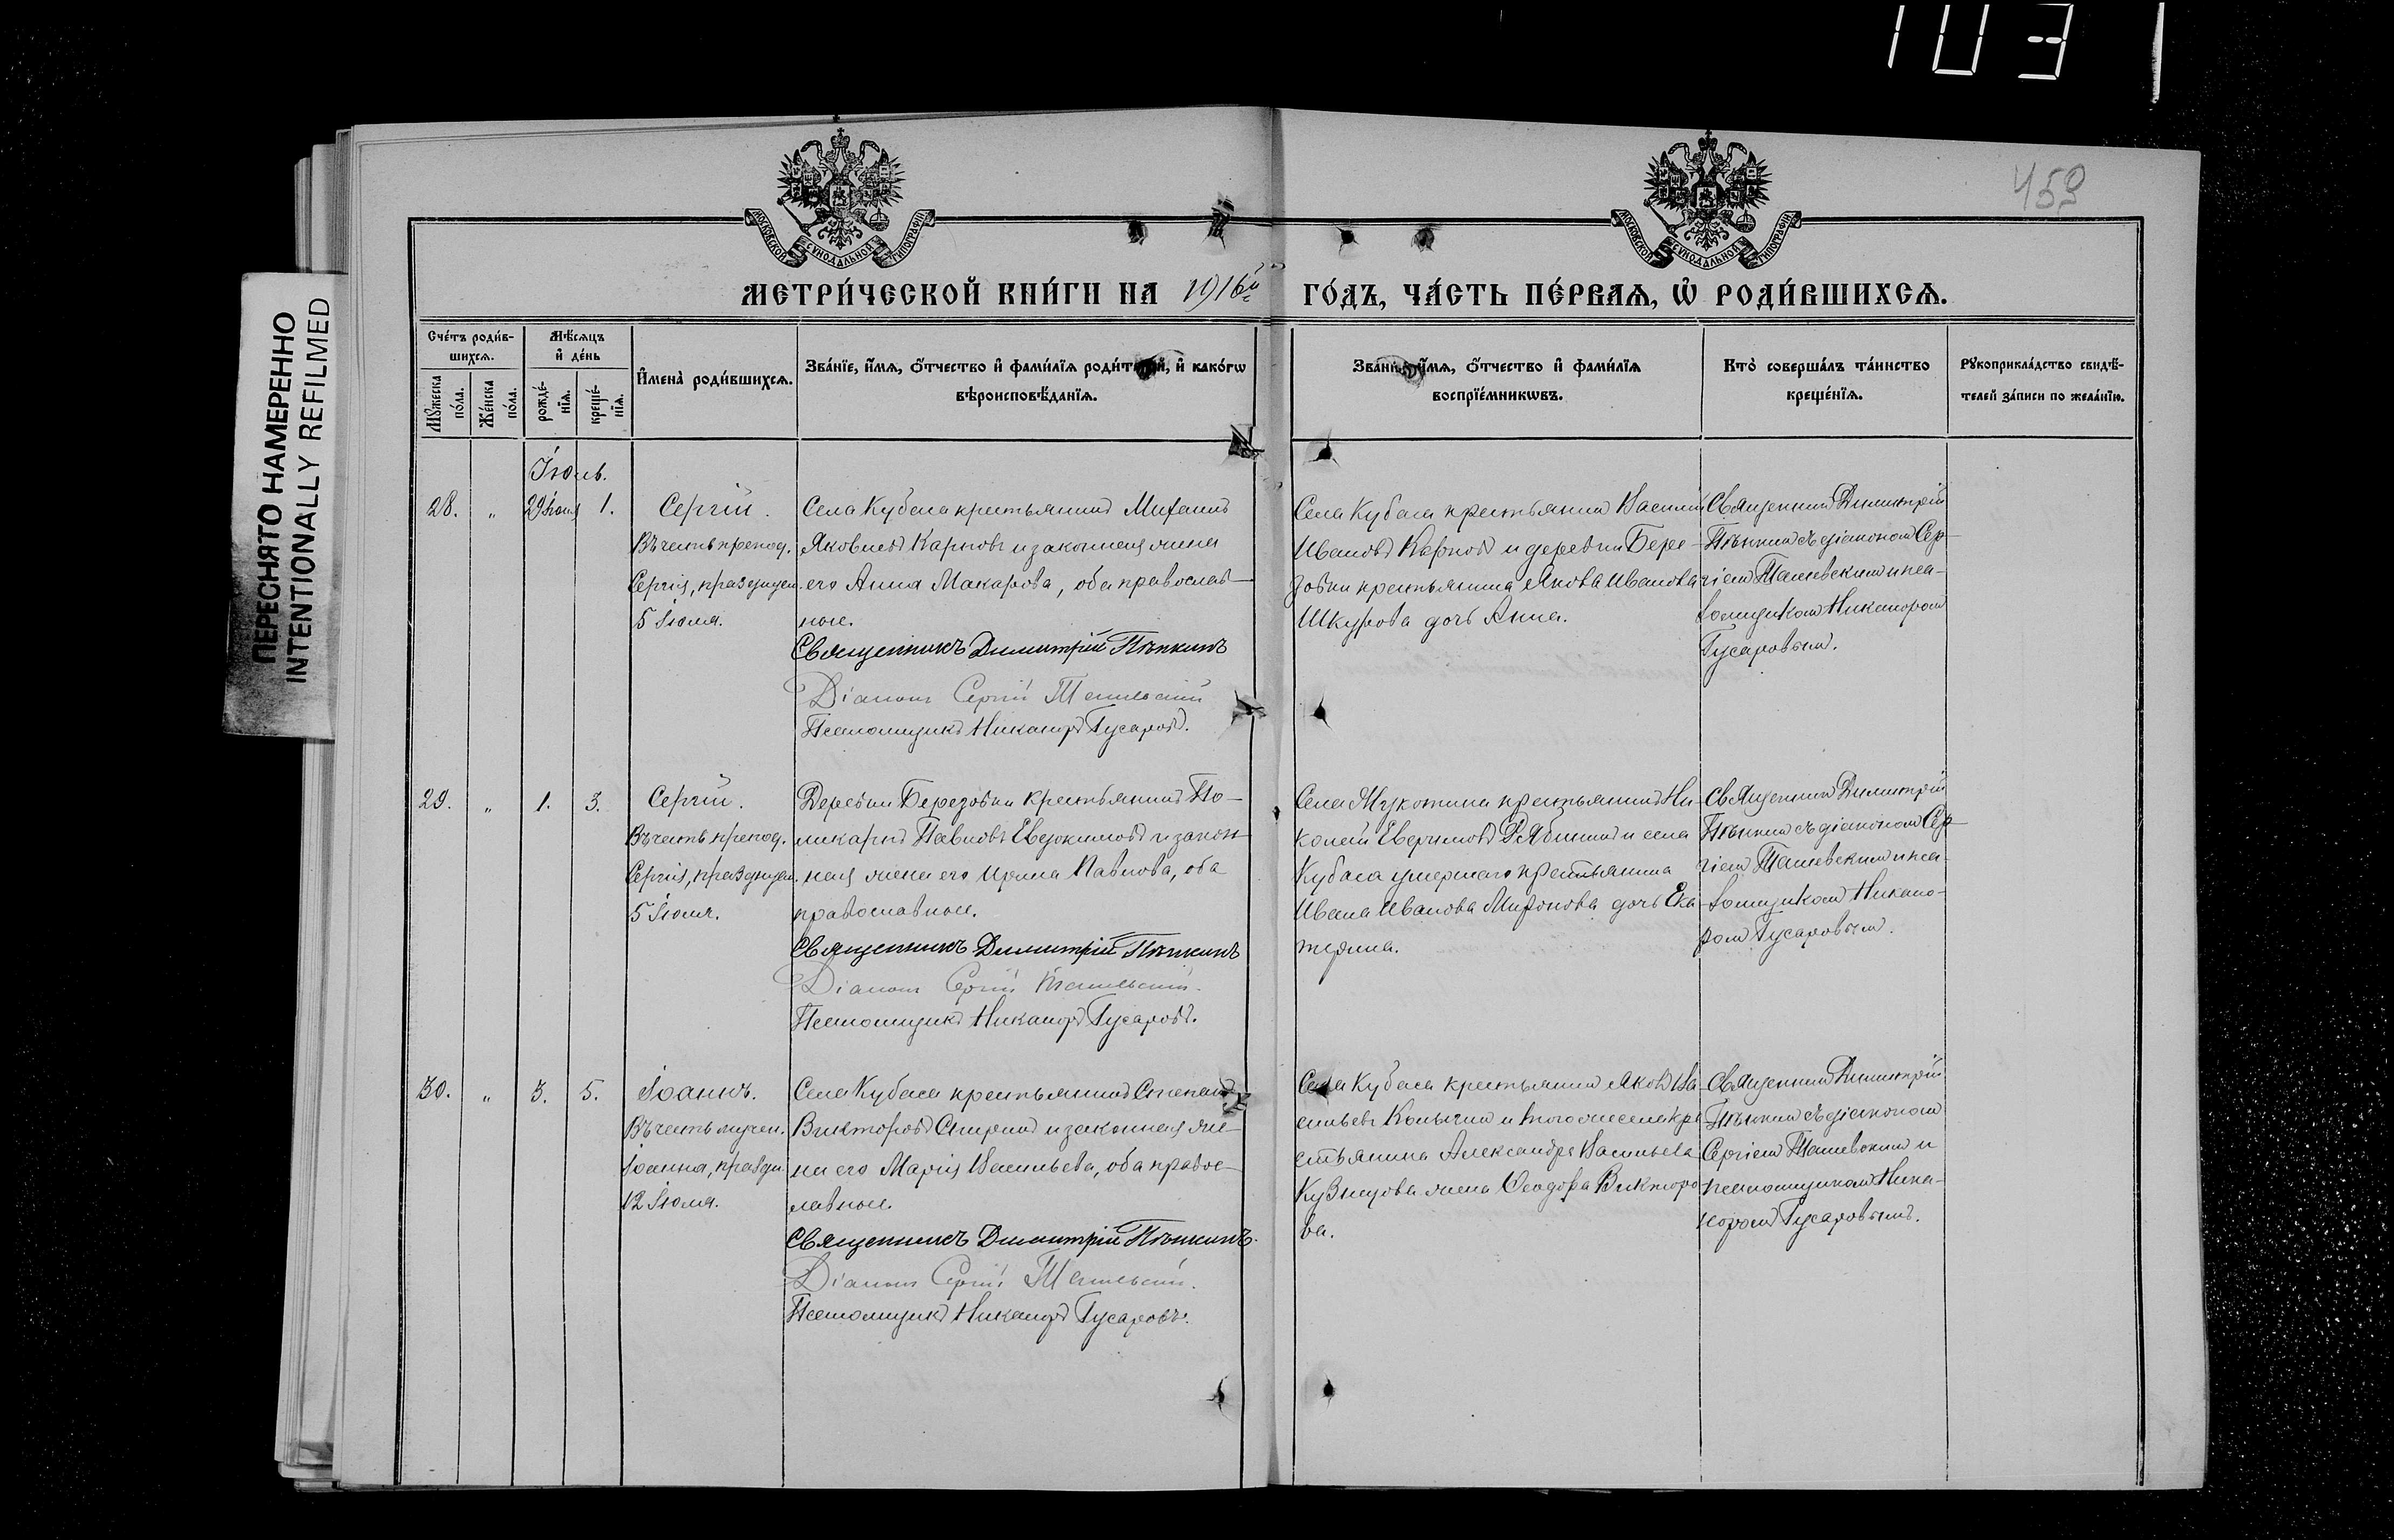 103
459
ПЕРЕСНЯТО НАМЕРЕННО
INTENTIONALLY REFILMED
МОСКОВСКОЙ СѴНОДАЛЬНОЙ ТИПОГРАФІИ
МОСКОВСКОЙ СѴНОДАЛЬНОЙ ТИПОГРАФІИ
МЕТРИ́ЧЕСКОЙ КНИ́ГИ НА 1916й ГО́ДЪ, ЧА́СТЬ ПЕ́РВАѦ, Ѡ҆ РОДИ́ВШИХСѦ.
Сче́тъ роди́в-
шихсѧ.
Мꙋ́жеска по́ла.
Же́нска по́ла.
Мѣ́сѧцъ
и҆ де́нь
рожде́-
нїѧ.
креще́-
нїѧ.
И҆мена̀ роди́вшихсѧ.
Зва́нїе, и҆́мѧ, ѻ҆́тчество и҆ фами́лїѧ роди́телей, и҆ како́гѡ
вѣроисповѣ́данїѧ.
Зва́нїе, и҆́мѧ, ѻ҆́тчество и҆ фами́лїѧ
воспрїе́мникѡвъ.
Кто̀ соверша́лъ та́инство
креще́нїѧ.
Рꙋкоприкла́дство свидѣ́-
телей за́писи по жела́нїю.
Іюль.
28. " 29 Іюня 1.
Сергій.
Въ честь препод.
Сергія, празднуем.
5 Іюля.
Села Кубаса крестьянинъ Михаилъ
Яковлевъ Карповъ и законная жена
его Анна Макарова, оба православ-
ные.
Священникъ Димитрій Пѣнкинъ
Діаконъ Сергій
Псаломщикъ Никаноръ Гусаровъ.
Села Кубаса крестьянин Василій
Ивановъ Карповъ и деревни Бере-
зовки крестьянина Якова Иванова
Шкурова дочь Анна.
Священник Димитрій
Пѣнкин съ діаконом Сер-
гіем и пса-
ломщиком Никанором
Гусаровым.
29. " 1. 3.
Сергій.
Въ честь препод.
Сергія, празднуем.
5 Іюля.
Деревни Березовки крестьянинъ По-
ликарпъ Павловъ Евдокимовъ и закон-
ная жена его Ирина Павлова, оба
православные.
Священникъ Димитрій Пѣнкинъ
Діаконъ Сергій
Псаломщикъ Никаноръ Гусаровъ.
Села крестьянинъ Ни-
колай Рябининъ и села
Кубаса умершаго крестьянина
Ивана Иванова Миронова дочь Ека-
терина.
Священник Димитрій
Пѣнкин съ діаконом Сер-
гіем и пса-
ломщиком Никано-
ром Гусаровым.
30. " 3. 5.
Іоаннъ.
Въ честь мучен.
Іоанна, праздн.
12 Іюля.
Села Кубаса крестьянинъ Степанъ
Викторовъ Спиринъ и законная же-
на его Марія Васильева, оба правос-
лавные.
Священникъ Димитрій Пѣнкинъ.
Діаконъ Сергій
Псаломщикъ Никаноръ Гусаровъ.
Села Кубаса крестьянин Яковъ Ва-
сильевъ и того же села кре-
стьянина Александра Васильева
Кузнецова жена Ѳеодора Викторо-
ва.
Священник Димитрій
Пѣнкин съ діаконом
Сергіем и
псаломщиком Ника-
нором Гусаровымъ.